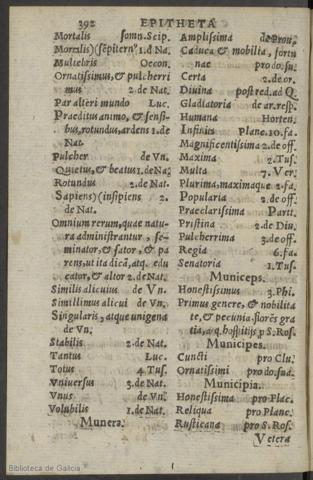 392 EPITHETA
Mortalis somn. Scip.
Mortalis) (sēpitern⁹ 1. d Na.
Muliebris Oecon.
Ornatissimus, & pulcherri
mus 2. de Nat.
Par alteri mundo Luc.
Praeditus animo, & sensi-
bus, rotundus, ardens 1. de
Nat.
Pulcher de Vn.
Quietus, & beatus 1. de Na:
Rotundus 2. de Nat.
Sapiens) (insipiens 2.
de Nat.
Omnium rerum, quae natu-
ra administrantur, se-
minator, & sator, & pa
rens, ut ita dicā, atq. edu
cator, & altor 2. de Nat.
Similis alicuius de Vn.
Simillimus alicui de Vn.
Singularis, atque unigena
de Vn.
Stabilis 2. de Nat.
Tantus Luc.
Totus 4. Tus.
Vniuersus 3. de Nat.
Vnus de Vn.
Volubilis 1. de Nat.
Munera.
Amplissima de Prou.
Caduca & mobilia, fortu
nae pro do. su.
Certa 2. de or.
Diuina post red. ad Q.
Gladiatoria de ar. resp.
Humana Horten.
Infinita Planc. 10. fa.
Magnificentissima 2. de off.
Maxima 2. Tus.
Multa 7. Ver.
Plurima, maximaque 2. fa.
Popularia 2. de off.
Praeclarissima Parti.
Pristina 2. de Diu.
Pulcherrima 3. de off.
Regia 6. fa.
Senatoria 1. Tus.
Municeps.
Honestissimus 3. Phi.
Primus genere, & nobilita
te, & pecunia, florēs gra
tia, & q. hospitijs p S. Ros.
Municipes.
Cuncti pro Clu.
Ornatissimi pro do. sua.
Municipia.
Honestissima pro Plac.
Reliqua pro Planc.
Rusticana pro S. Ros.
Vetera
Biblioteca de Galicia